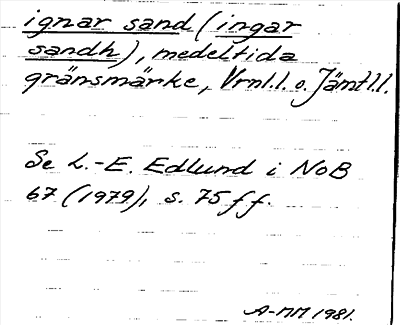 ignar sand (ingar
sandh), medeltida
gränsmärke, Vrml.l. o. Jämtl.l.
Se L.-E. Edlund i NoB
67 (1979), s. 75 ff.
A-MM 1981.